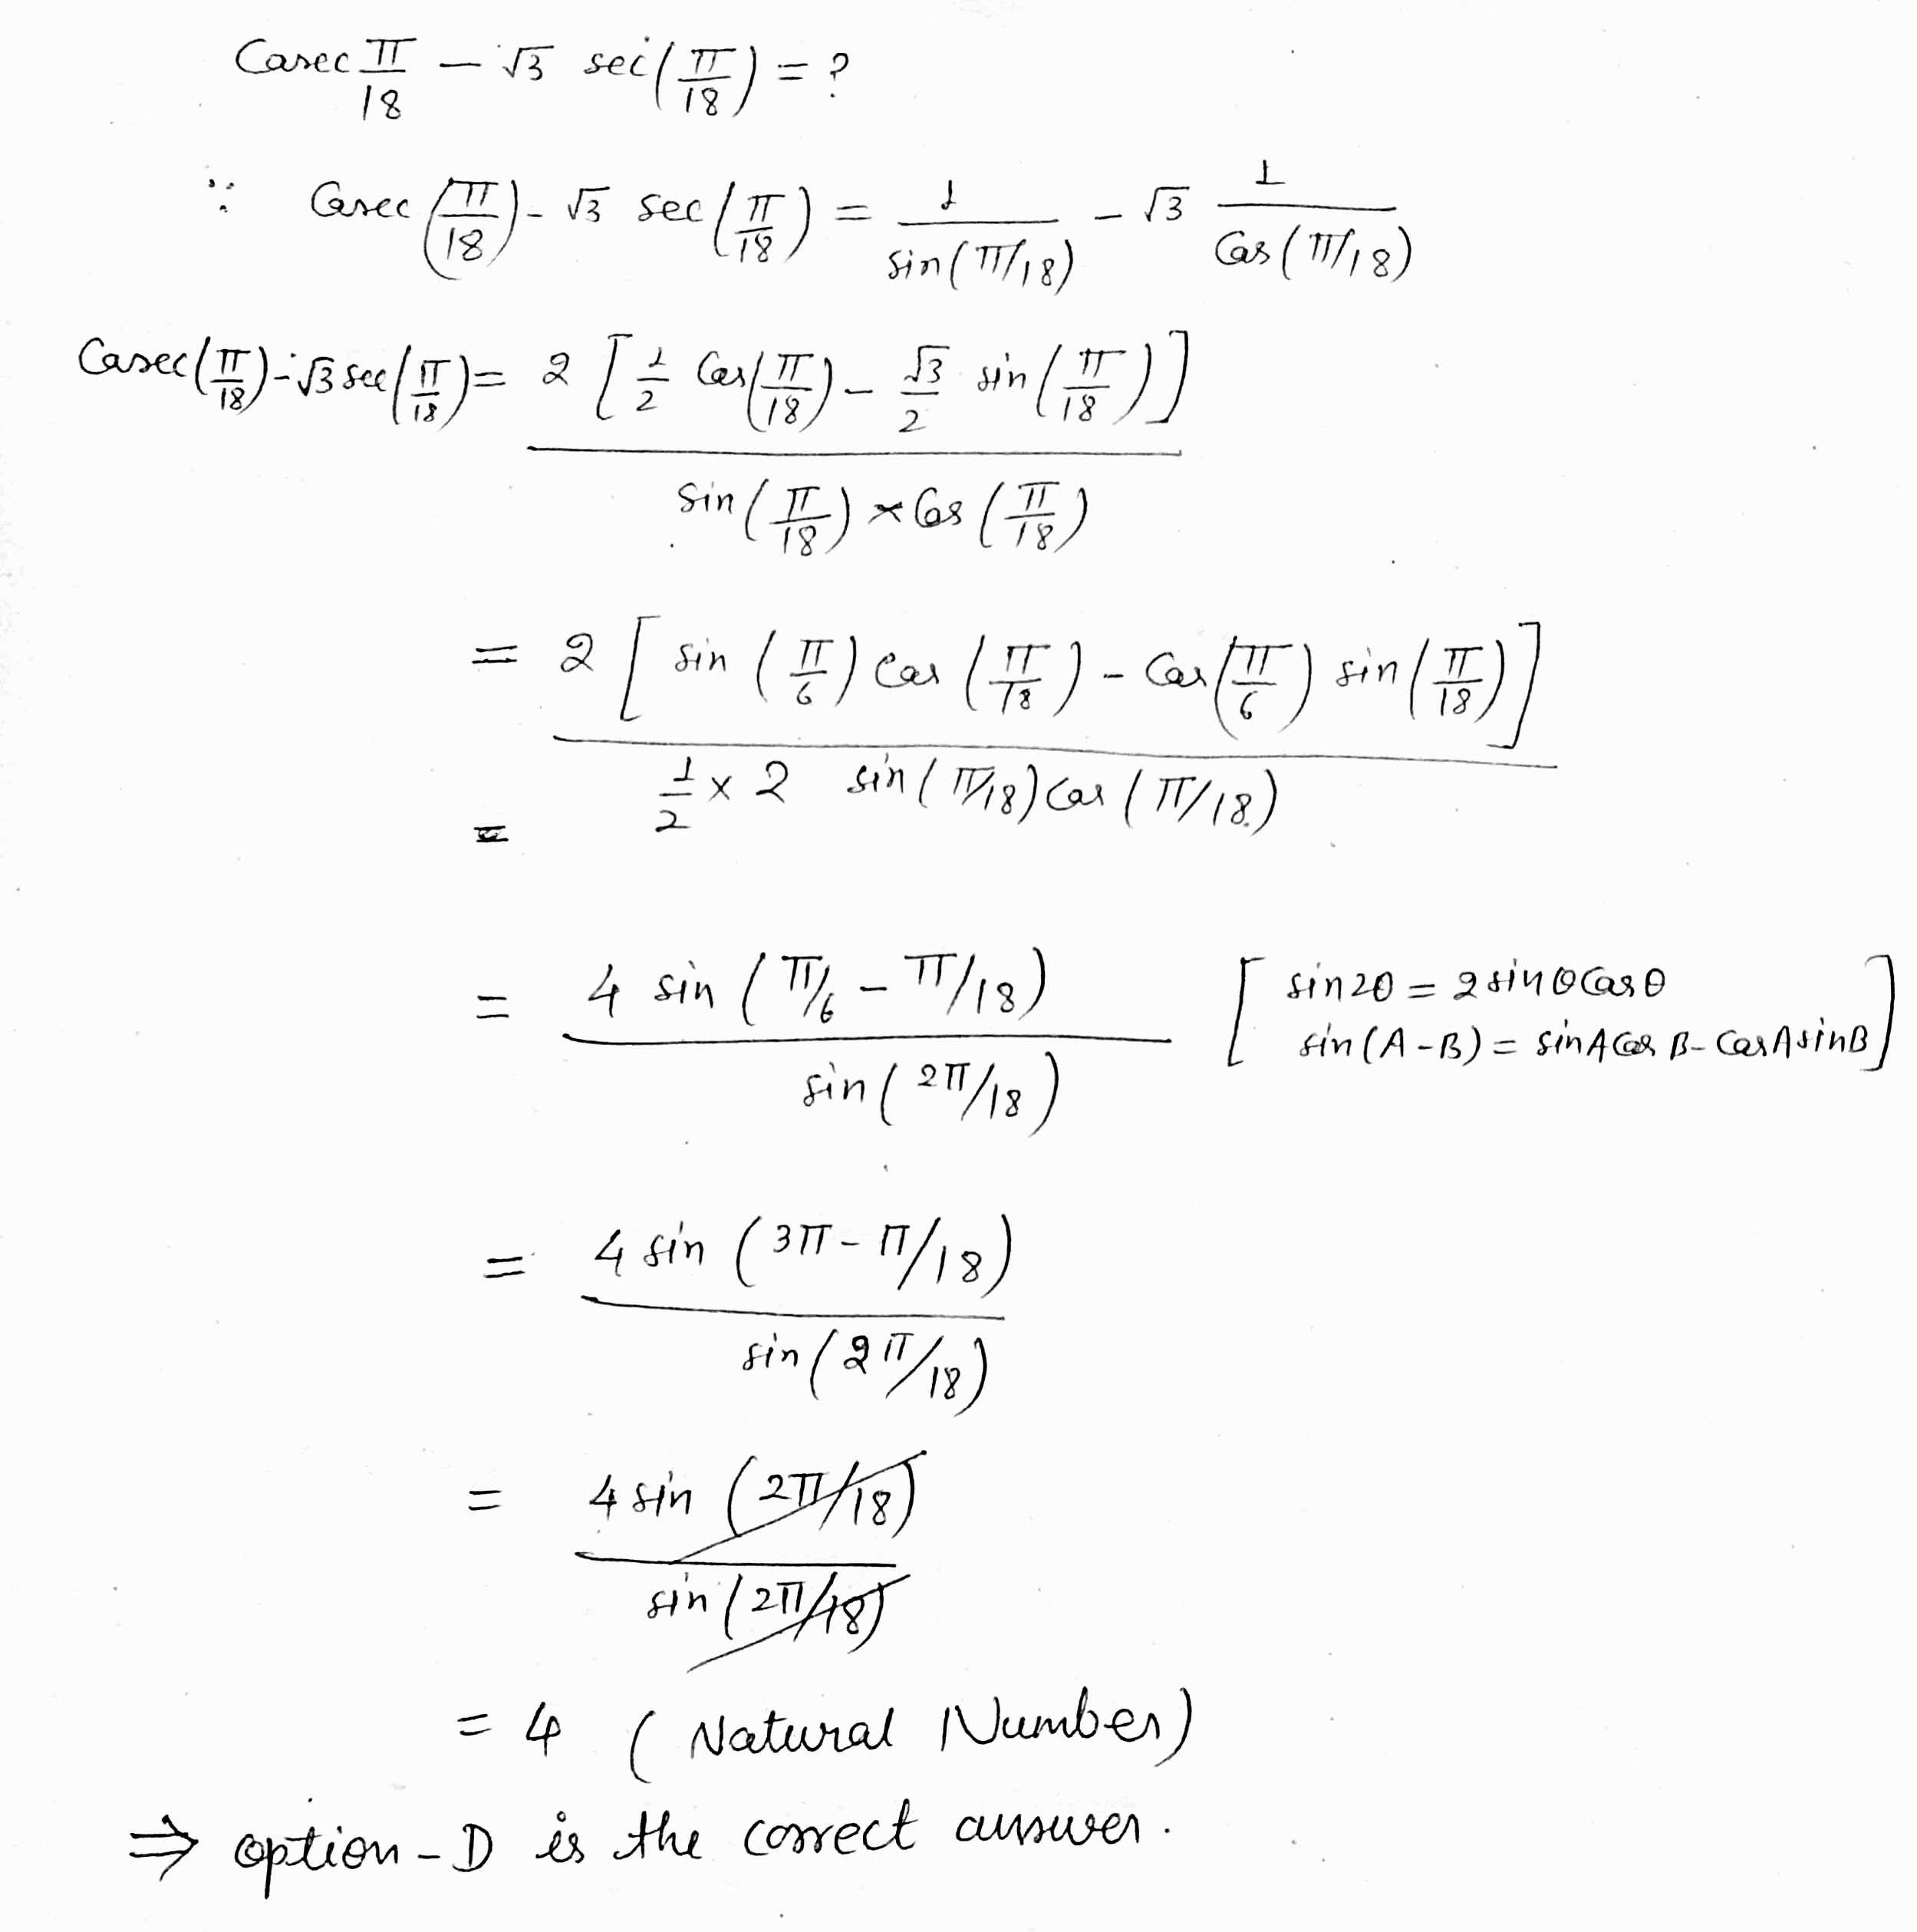 Cosec π/18 - √3 sec(π/18) = ?
∵ Cosec(π/18) - √3 sec(π/18) = 1/sin(π/18) - √3 1/Cos(π/18)
Cosec(π/18) - √3 sec(π/18) = 2[1/2 Cos(π/18) - √3/2 sin(π/18)]
sin(π/18) × Cos(π/18)
= 2[sin(π/6) Cos(π/18) - Cos(π/6) sin(π/18)]
1/2 × 2 sin(π/18) Cos(π/18)
=
= 4 sin(π/6 - π/18) [sin2θ = 2sinθCosθ
sin(A-B) = sinACosB-CosAsinB]
sin(2π/18)
= 4 sin(3π-π/18)
sin(2π/18)
= 4 sin(2π/18)
sin(2π/18)
= 4 (Natural Number)
⇒ option-D is the correct answer.